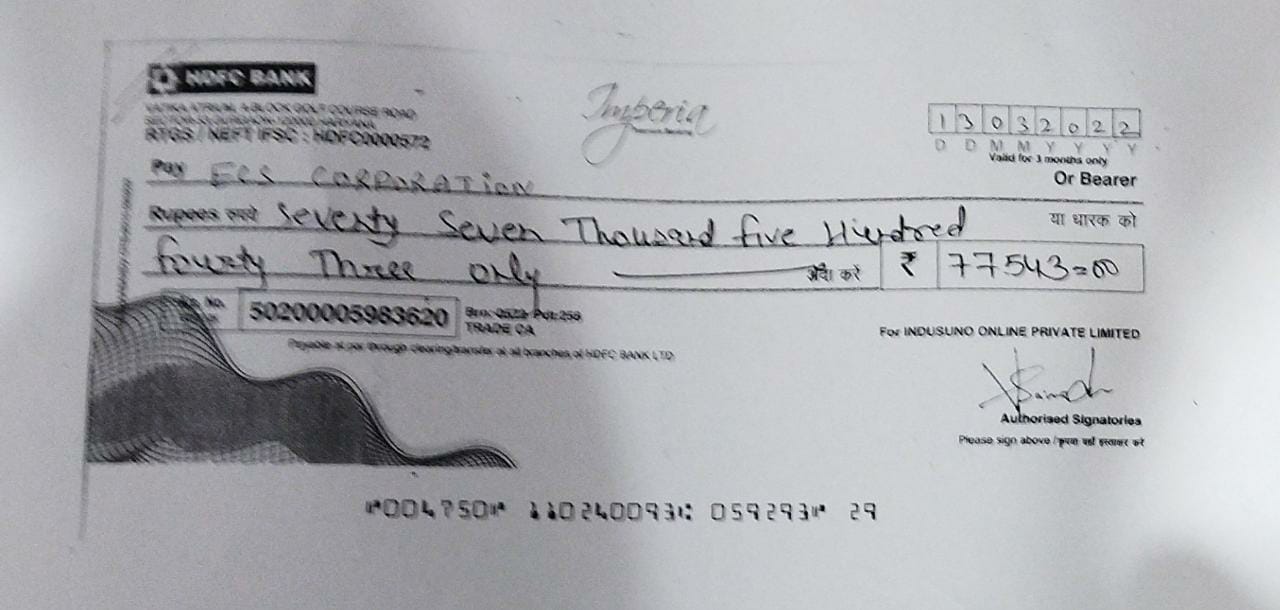 HDFC BANK
VATIKA ATRIUM, A-BLOCK GOLF COURSE ROAD
RTGS / NEFT IFSC : HDFC0000572
Imperia
13032022
D D M M Y Y Y Y
Valid for 3 months only
Pay ECS CORPORATION
Or Bearer
Rupees रुपये Seventy Seven Thousand five Hundred
या धारक को
fourty Three only अदा करें ₹ 77543=00
No. 50200005983620
TRADE CA
Payable at par through clearing/transfer at all branches of HDFC BANK LTD
For INDUSUNO ONLINE PRIVATE LIMITED
Authorised Signatories
Please sign above / कृपया यहाँ हस्ताक्षर करें
⑈004750⑈ 110240093⑆ 059293⑈ 29